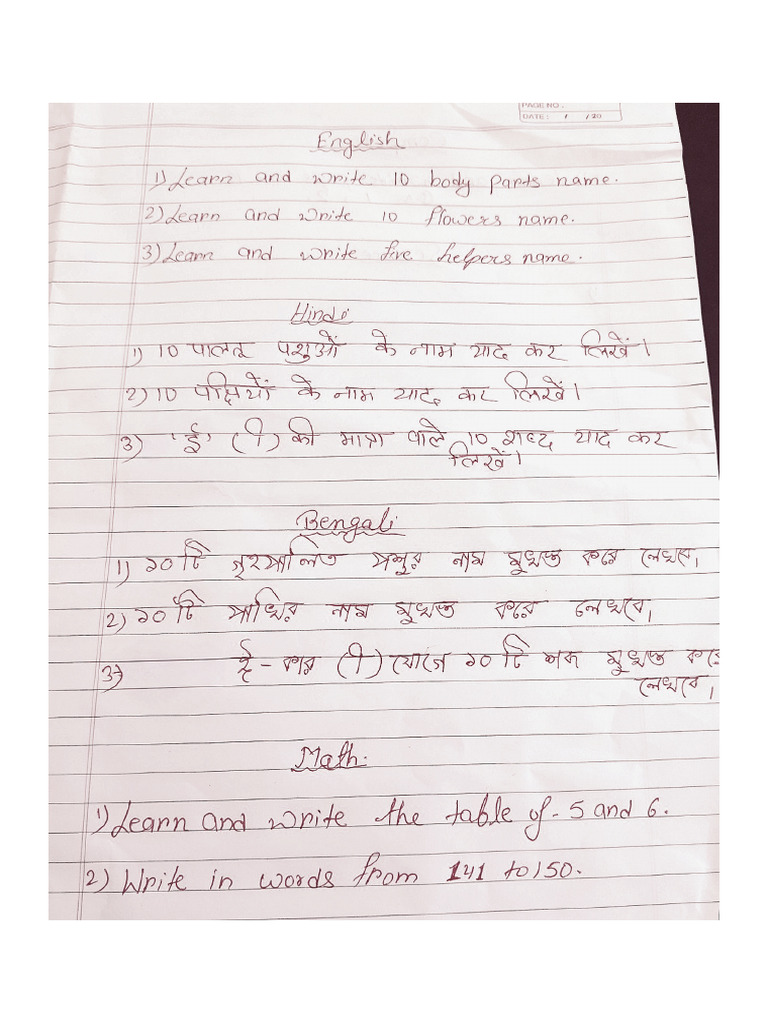 PAGE NO.:
DATE: / /20
English
1) Learn and write 10 body parts name.
2) Learn and write 10 flowers name.
3) Learn and write five helpers name.
Hindi
1) 10 पालतू पशुओं के नाम याद कर लिखें।
2) 10 पक्षियों के नाम याद कर लिखें।
3) 'ई' (ी) की मात्रा वाले 10 शब्द याद कर
लिखें।
Bengali
1) ১০ টি গৃহপালিত পশুর নাম মুখস্ত করে লেখবে।
2) ১০ টি পাখির নাম মুখস্ত করে লেখবে।
3) ই - কার (ী) যোগে ১০ টি শব্দ মুখস্ত করে
লেখবে।
Math.
1) Learn and write the table of - 5 and 6.
2) Write in words from 141 to 150.